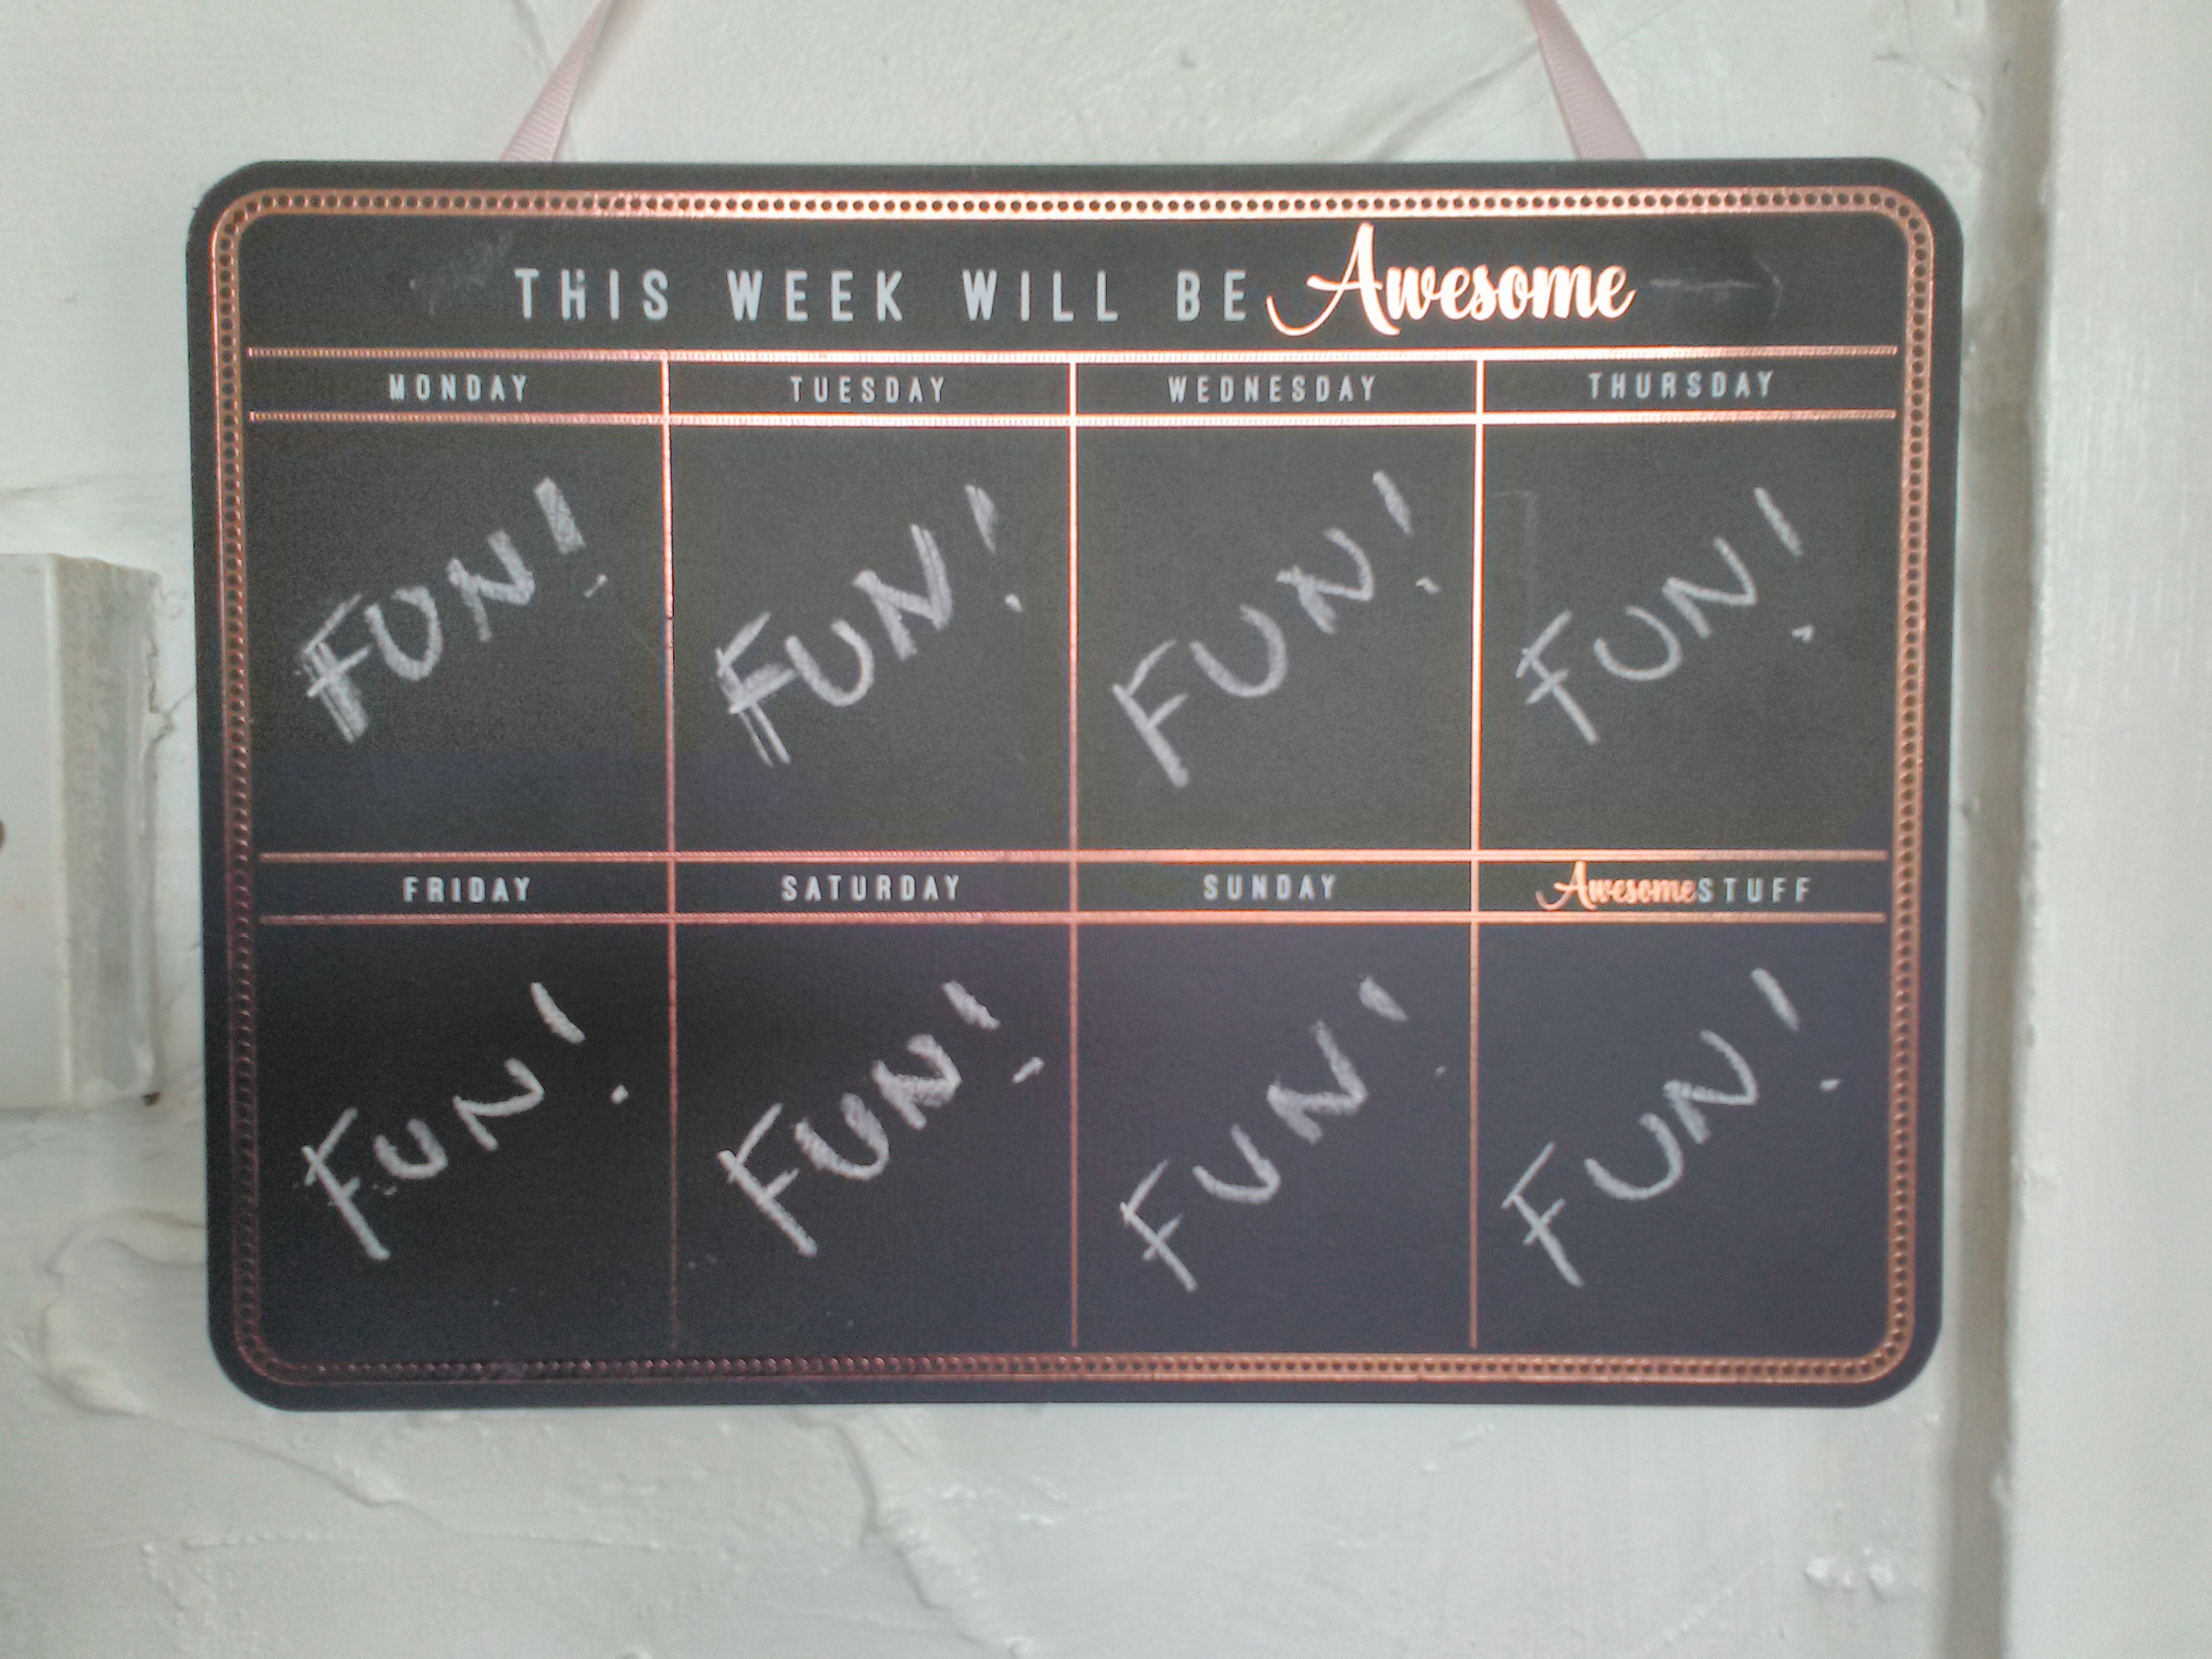 THIS WEEK WILL BE Awesome
MONDAY TUESDAY WEDNESDAY THURSDAY
FUN! FUN! FUN! FUN!
FRIDAY SATURDAY SUNDAY Awesome STUFF
FUN! FUN! FUN! FUN!